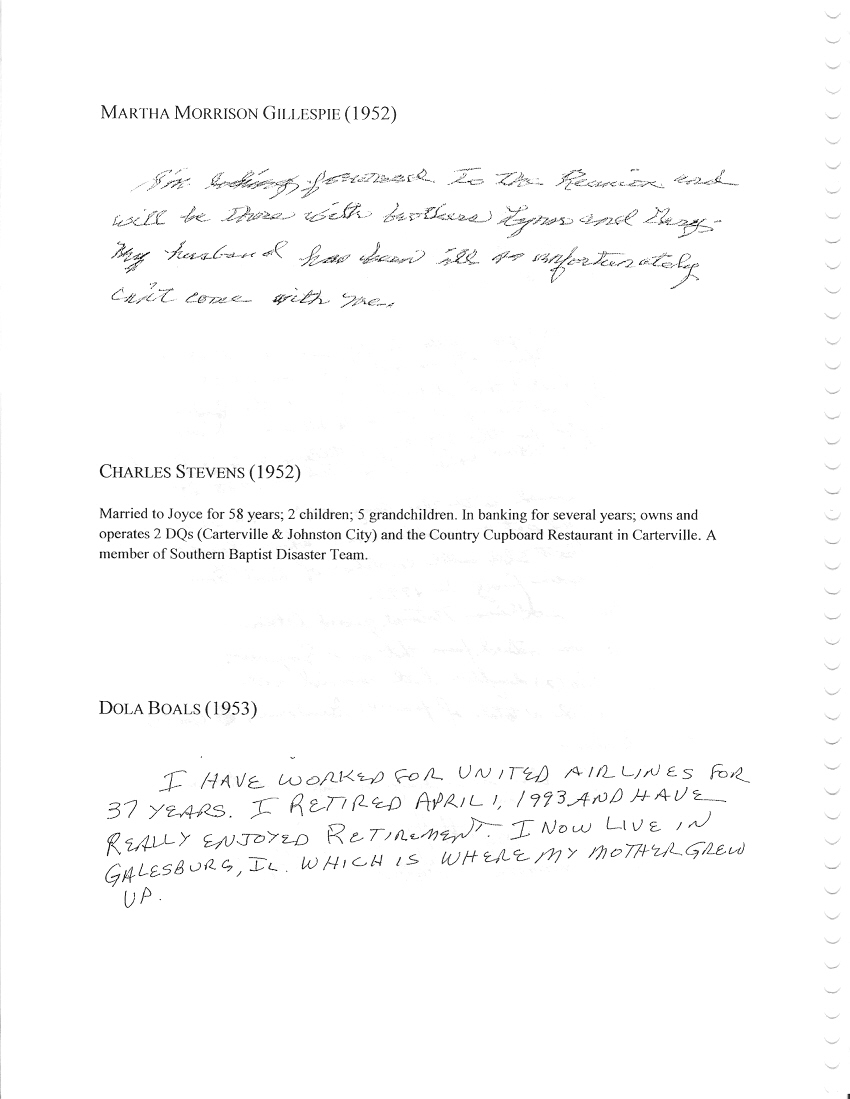 MARTHA MORRISON GILLESPIE (1952)
I'm looking forward to the Reunion and
will be there with brothers Lynn and Gary.
My husband has been ill so unfortunately
can't come with me.
CHARLES STEVENS (1952)
Married to Joyce for 58 years; 2 children; 5 grandchildren. In banking for several years; owns and
operates 2 DQs (Carterville & Johnston City) and the Country Cupboard Restaurant in Carterville. A
member of Southern Baptist Disaster Team.
DOLA BOALS (1953)
I HAVE WORKED FOR UNITED AIRLINES FOR
37 YEARS. I RETIRED APRIL 1, 1993 AND HAVE
REALLY ENJOYED RETIREMENT. I NOW LIVE IN
GALESBURG, IL. WHICH IS WHERE MY MOTHER GREW
UP.